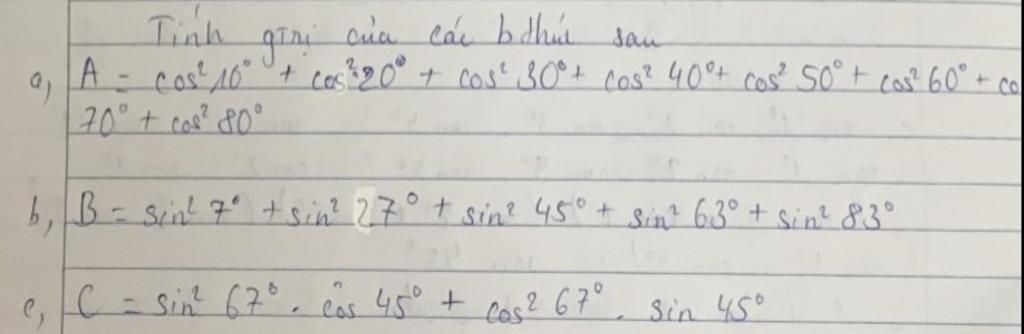 Tính gtrị của các bthức sau
a, A = cos² 10° + cos² 20° + cos² 30° + cos² 40° + cos² 50° + cos² 60° + co
70° + cos² 80°
b, B = sin² 7° + sin² 27° + sin² 45° + sin² 63° + sin² 83°
c, C = sin² 67° . cos 45° + cos² 67° . sin 45°